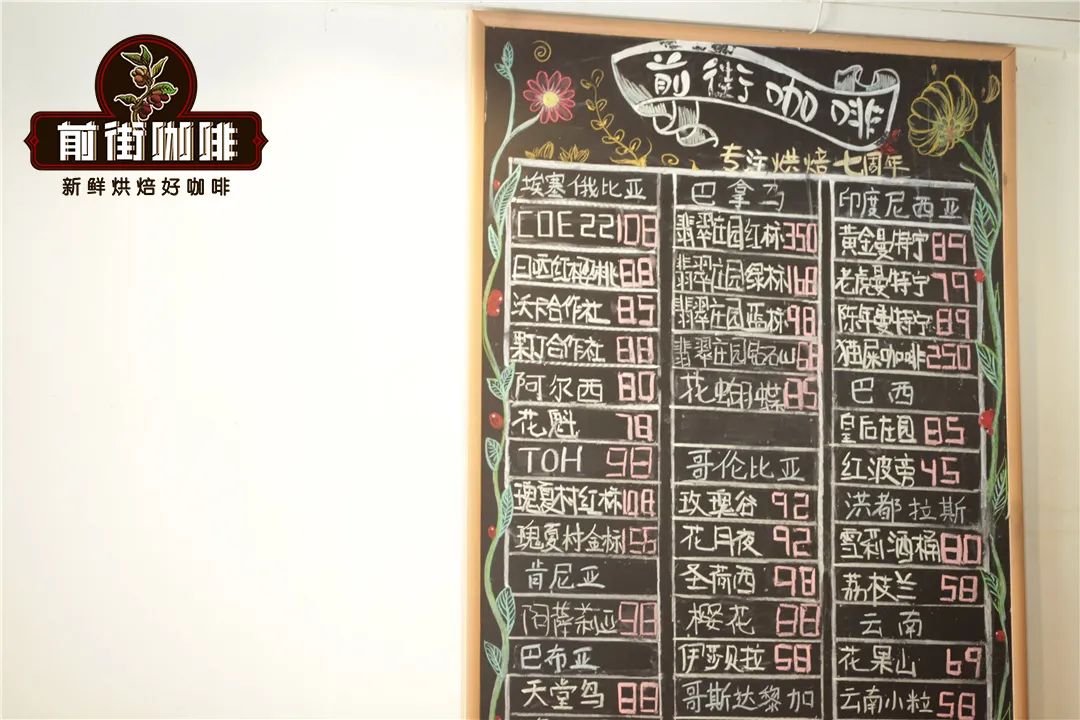 前街咖啡
新鲜烘焙好咖啡
前街咖啡
专注烘焙七周年
埃塞俄比亚
COE22 108
日晒红樱桃 88
沃卡合作社 85
果丁合作社 88
阿尔西 80
花魁 78
TOH 98
瑰夏村红标 108
瑰夏村金标 155
肯尼亚
阿萨莉亚 98
巴布亚
天堂鸟 88
巴拿马
翡翠庄园红标 350
翡翠庄园绿标 168
翡翠庄园蓝标 98
翡翠庄园钻石山 68
花蝴蝶 85
哥伦比亚
玫瑰谷 92
花月夜 92
圣荷西 98
樱花 88
伊莎贝拉 58
哥斯达黎加
印度尼西亚
黄金曼特宁 89
老虎曼特宁 79
陈年曼特宁 89
猫屎咖啡 250
巴西
皇后庄园 85
红波旁 45
洪都拉斯
雪莉酒桶 80
荔枝兰 58
云南
花果山 69
云南小粒 58